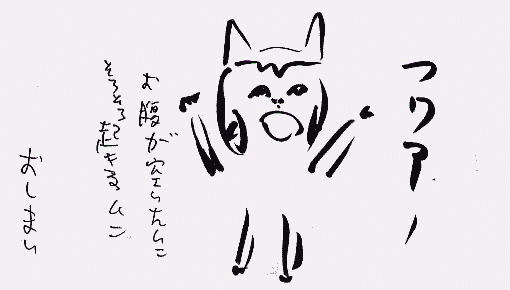 フワアー
お腹が空いたムニ
そろそろ起きるムニ
おしまい